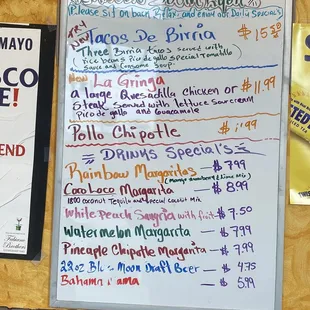 (Please sit on back & Relax and enjoy our Daily Special's)
MAYO
TRY
NEW
Tacos De Birria $15
Three Birria tacos served with
rice beans Pico de gallo special Tomatillo
Sauce and Consome Soup.
New
La Gringa $11.99
a large Quesadilla chicken or
Steak Served with lettuce Sourcream
Pico de gallo and Guacamole
Pollo Chipotle
DRINKS Special's
Rainbow Margaritas $7.99
Coco Loco Margarita — $8.99
1800 coconut Tequila and Special Coconut Mix
White Peach Sangria with fruit $7.50
Watermelon Margarita — $7.99
Pineapple Chipotle Margarita — $7.99
22oz Blue Moon Draft Beer — $4.75
Bahama Mama — $5.99
SCO
E!
END